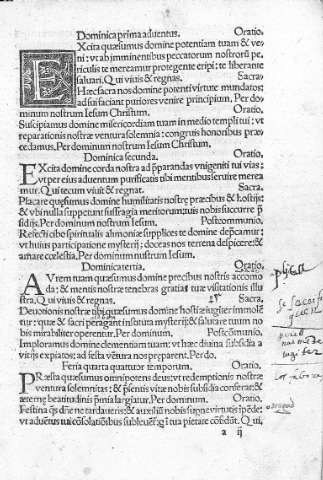 Dominica prima aduentus. Oratio.
EXcita quæsumus domine potentiam tuam & ve
ni: vt ab imminentibus peccatorum nostrorũ pe
riculis te mereamur protegente eripi: te liberante
saluari. Qui viuis & regnas. Sacra.
Hæc sacra nos domine potenti virtute mundatos:
ad sui faciant puriores venire principium. Per do
minum nostrum Iesum Christum. Oratio.
Suscipiamus domine misericordiam tuam in medio templi tui: vt
reparationis nostræ ventura solemnia: congruis honoribus præ
cedamus. Per dominum nostrum Iesum Christum.
Dominica secunda. Oratio.
EXcita domine corda nostra ad p̄parandas vnigeniti tui vias:
vt per eius aduentum purificatis tibi mentibus seruire merea
mur. Qui tecum viuit & regnat. Sacra.
Placare quęsumus domine humilitatis nostrę precibus & hostijs:
& vbi nulla suppetunt suffragia meritorum: tuis nobis succurre p̄
sidijs. Per dominum nostrum Iesum. Postcommunio.
Refecti cibo spiritualis alimonię supplices te domine dep̄camur:
vt huius participatione mysterij: doceas nos terrena despicere: &
amare cœlestia. Per dominum nustrum Iesum.
Dominica tertia. Oratio.
AVrem tuam quæsumus domine precibus nostris accomo
da: & mentis nostræ tenebras gratia tuæ visitationis illu
stra. Qui viuis & regnas. Sacra.
Deuotionis nostræ tibi quæsumus domine hostia iugiter immole
tur: quæ & sacri peragant instituta mysterij: & salutare tuum no
bis mirabiliter operentur. Per dominum. Postcõmunio.
Imploramus domine clementiam tuam: vt hæc diuina subsidia a
vitijs expiatos: ad festa vẽtura nos preparent. Per do.
Feria quarta quatuor temporum. Oratio.
PRæsta quæsumus omnipotens deus: vt redemptionis nostræ
ventura solemnitas: & p̄sentis vitæ nobis subsidia conferat: &
æternę beatitudinis p̄mia largiatur. Per dominum. Oratio.
Festina q̄s dñe ne tardaueris: & auxiliũ nobis supnę virtutis ĩpẽde:
vt aduẽtus tui cõsolatiõibus subleuẽt̃ q̃ i tua pietate cõfidũt. Qui.
a ij